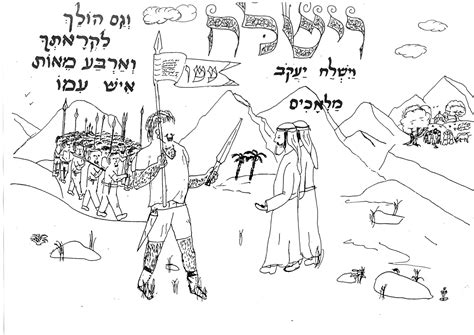 וישלח
וְגַם הוֹלֵךְ
לִקְרָאתְךָ
וְאַרְבַּע מֵאוֹת
אִישׁ עִמּוֹ
וַיִּשְׁלַח יַעֲקֹב
מַלְאָכִים